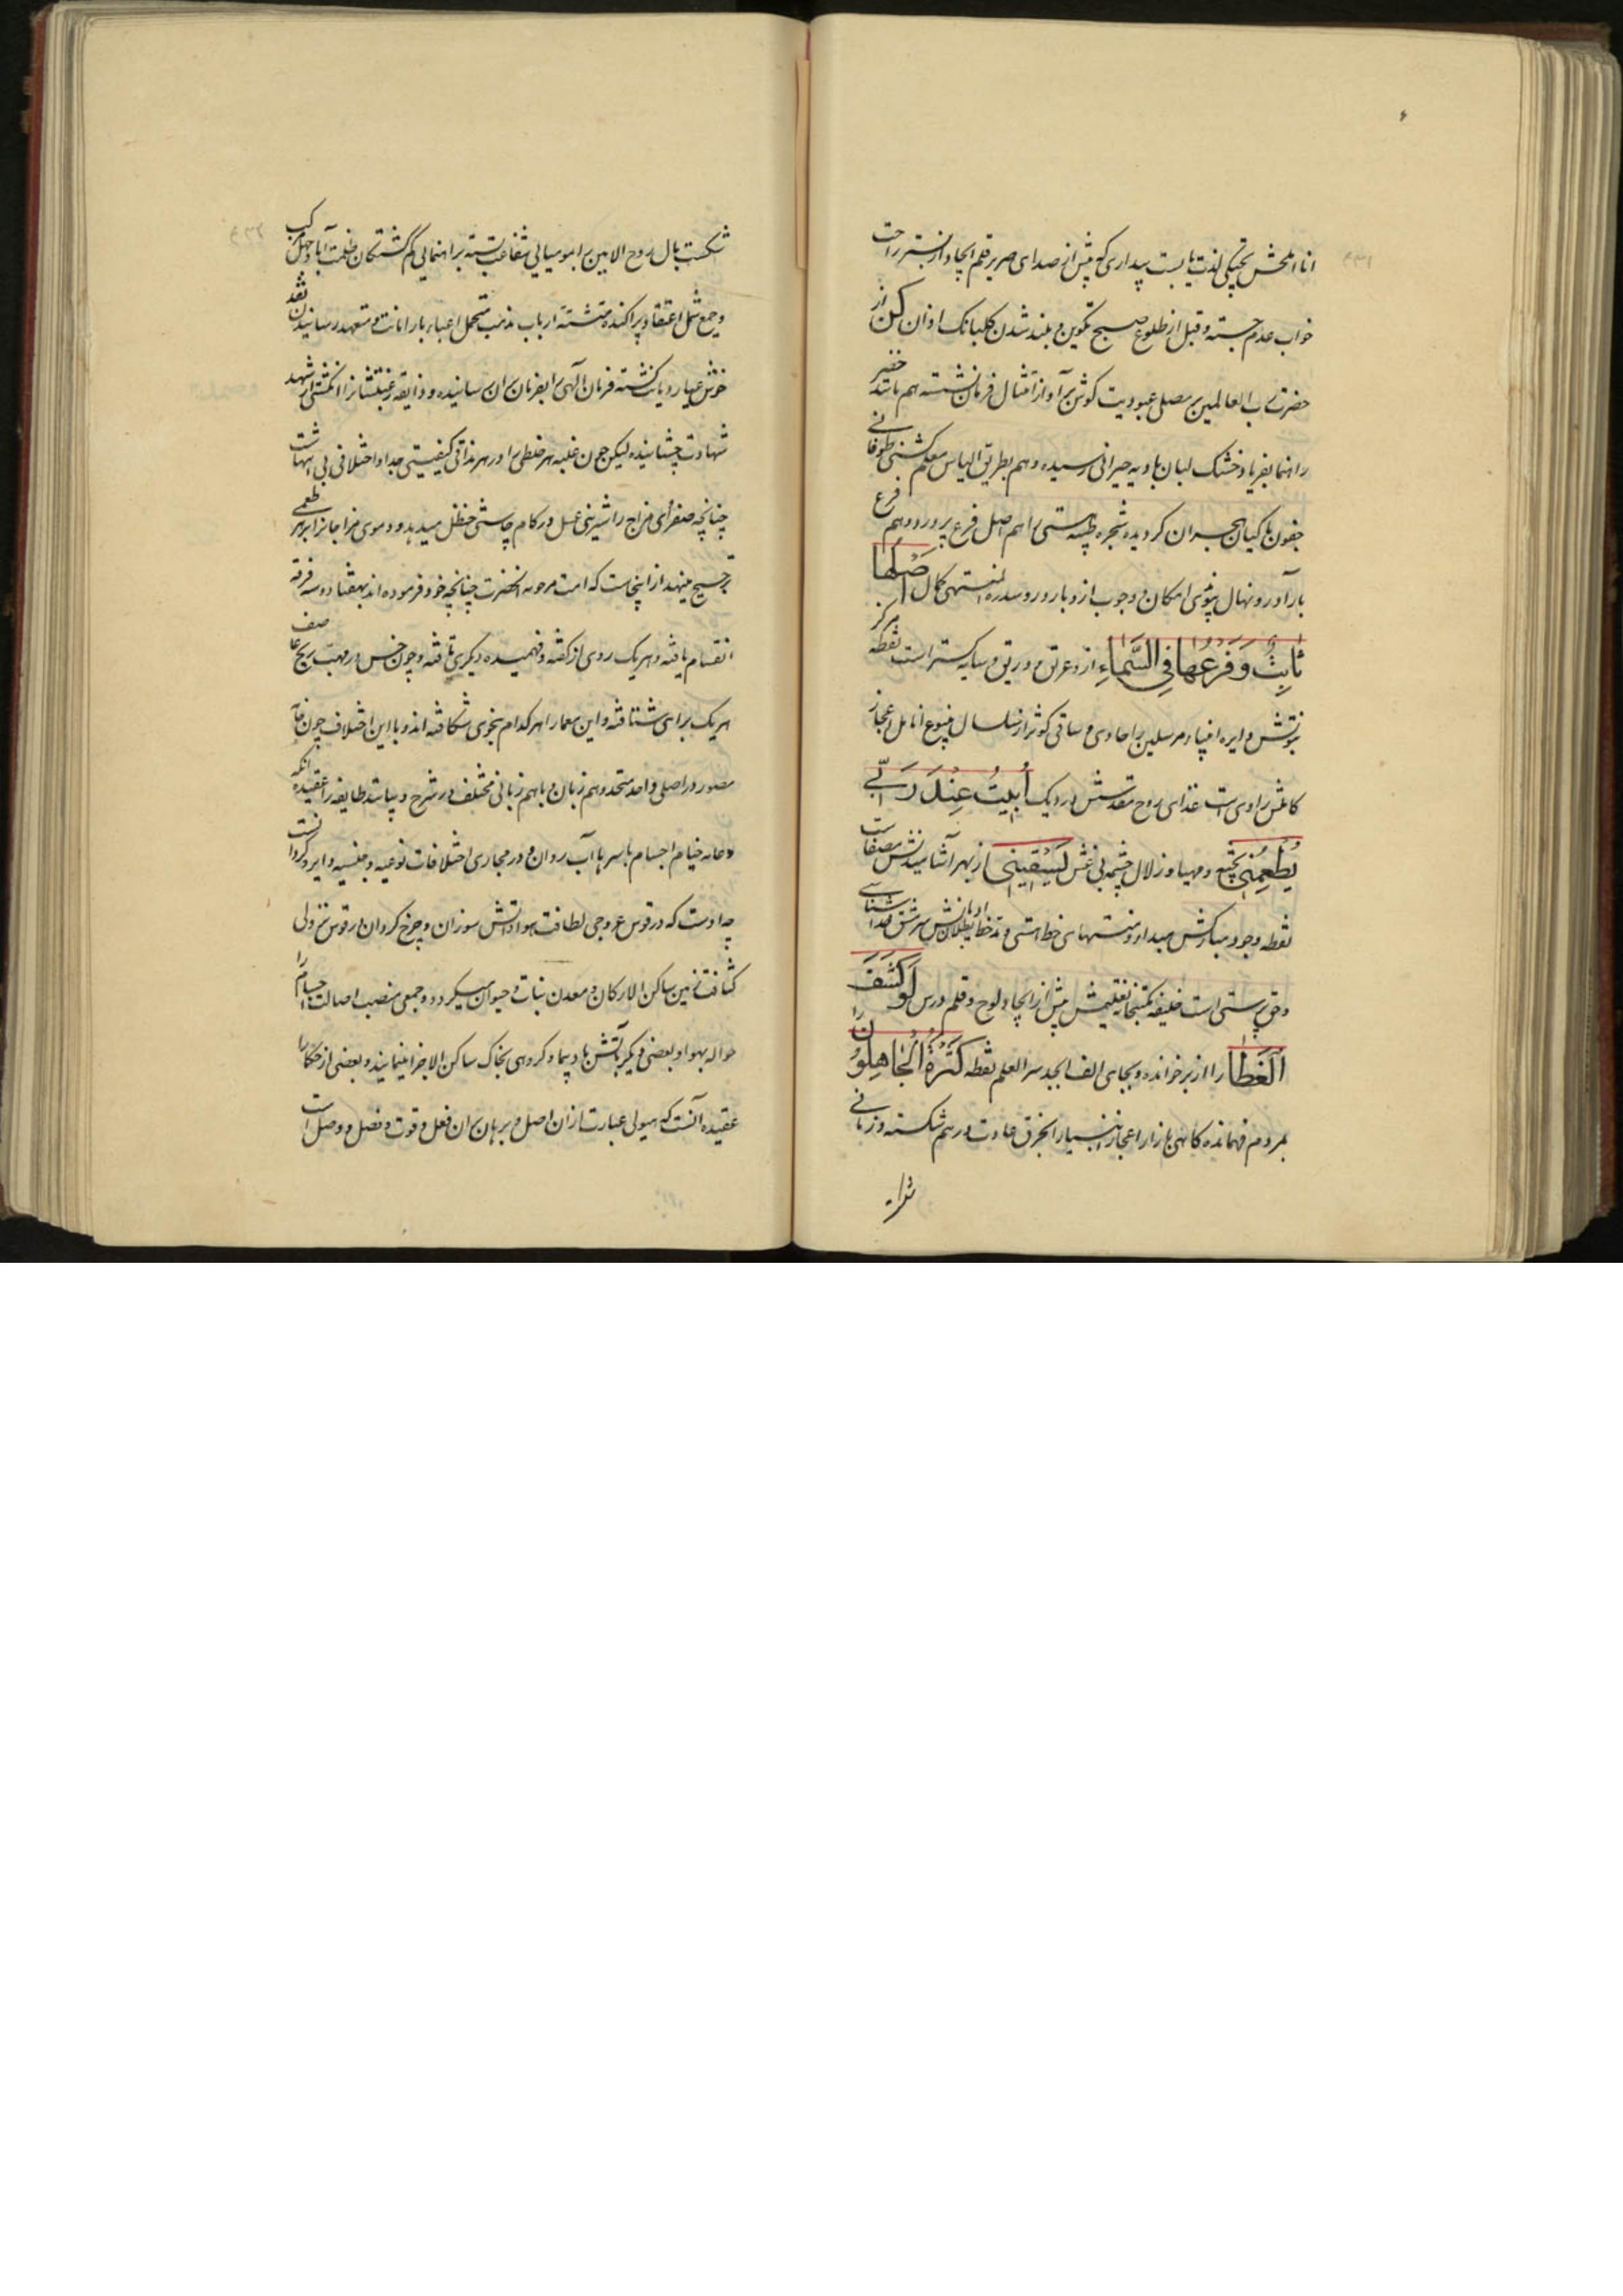 انا املحش تحیتکی لذت یابست بیداری که پیش از صدای صریر قلم ایجاد از بستر راحت
خواب عدم جسته و قبل از طلوع صبح تکوین و بلند شدن کلبانک اذان کن از
حضرت رب العالمین بر مصلی عبودیت کوش بر آواز امتثال فرمان نشسته هم مانند خضر
راهنما بفریاد خشک لبان بادیه حیرانی رسیده و هم بطریق الیاس معلم کشتی طوفانی
جفون باکیان هجران کردیده شجره طیبه هستی را هم اصل فرع پرور و هم فرع
بارآور و نهال پیوندی امکان و وجوب ازو بارور و سدره المنتهی کمال اَصْلُها
ثابِتٌ وَفَرْعُها فِی السَّماءِ ازو عرق و وریق و سایه کستر است نقطه مرکز
نبوتش دایره انبیاء و مرسلین را حاوی و ساقی کوثر از سلسال ینبوع انامل اعجاز
کاملش راوی است غذای روح مقدسش در دیک اُبِیتُ عِنْدَ رَبّی
یُطْعِمُنی پخته و مهیا و زلال چشمه بی غش یَسْقِینی از بهر آشامیدنش مصفاست
نقطه وجود مبارکش مبدا و منتهای خط هستی و مد خط بطلان ادیانش سرمشق خدا شناسی
و حق پرستی است خلیفه مکتبخانه تعلیمش پیش از ایجاد لوح و قلم درس لَوْ کُشِفَ
الغَطا را از بر خوانده و بجای الف ابجد سر العلم نقطه کَثَّرَهُ الْجاهِلُونَ را
بمردم فهمانده کاهی بازار اعجاز انبیا را بخرق عادت درهم شکسته و زمانی
شکست بال روح الامین را بمومیایی شفاعت بسته براهنمایی کم کشتکان ظلمت آباد جهل مرکب
و جمع شمل اعتقاد پراکنده متشتته ارباب مذهب متحمل اعباء بار امانت و متعهد رسانیدن نقد
خوش عیار دیانت کشته فرمان الهی را بفرمان بران رسانیده و ذایقه رغبتشانرا انکشتی از شهد
شهادت چشانیده لیکن چون غلبه هر خلطی را در هر مذاقی کیفیتی جدا و اختلافی بی انتهاست
چنانچه صفرای مزاج را شیرینی عسل در کام چاشنی حنظل میدهد و دموی مزاجانرا بر هر طعمی
ترجیح مینهد از اینجاست که امت مرحومه انحضرت چنانچه خود فرموده اند بهفتاد و سه فرقه
انقسام یافته و هریک روی از کفته و فهمیده دیکری تافته و چون خس در مهب ریح عاصف
هریک براهی شتافته و این معما را هرکدام بنحوی شکافته اند و با این اختلاف چون
مصور در اصلی واحد متحد و هم زبان و باهم زبانی مختلف در شرح و بیانند طایفه را عقیده انکه
دعامه خیام اجسام باسرها آب روان و در مجاری اختلافات نوعیه و جنسیه دایر و کردانست
چه اوست که در قوس عروجی لطافت هوا و آتش سوزان و چرخ کردان و در قوس نزولی
کثافت زمین ساکن الارکان و معدن و نبات و حیوان میکردد و جمعی منصب اصالت اجسام را
حواله بهوا و بعضی دیکر بآتش بادپیما و کروهی بخاک ساکن الاجزا مینمایند و بعضی از حکما را
عقیده آنست که هیولی عبارت از ان اصل و برهان بران فعل و قوت و فصل و وصل است